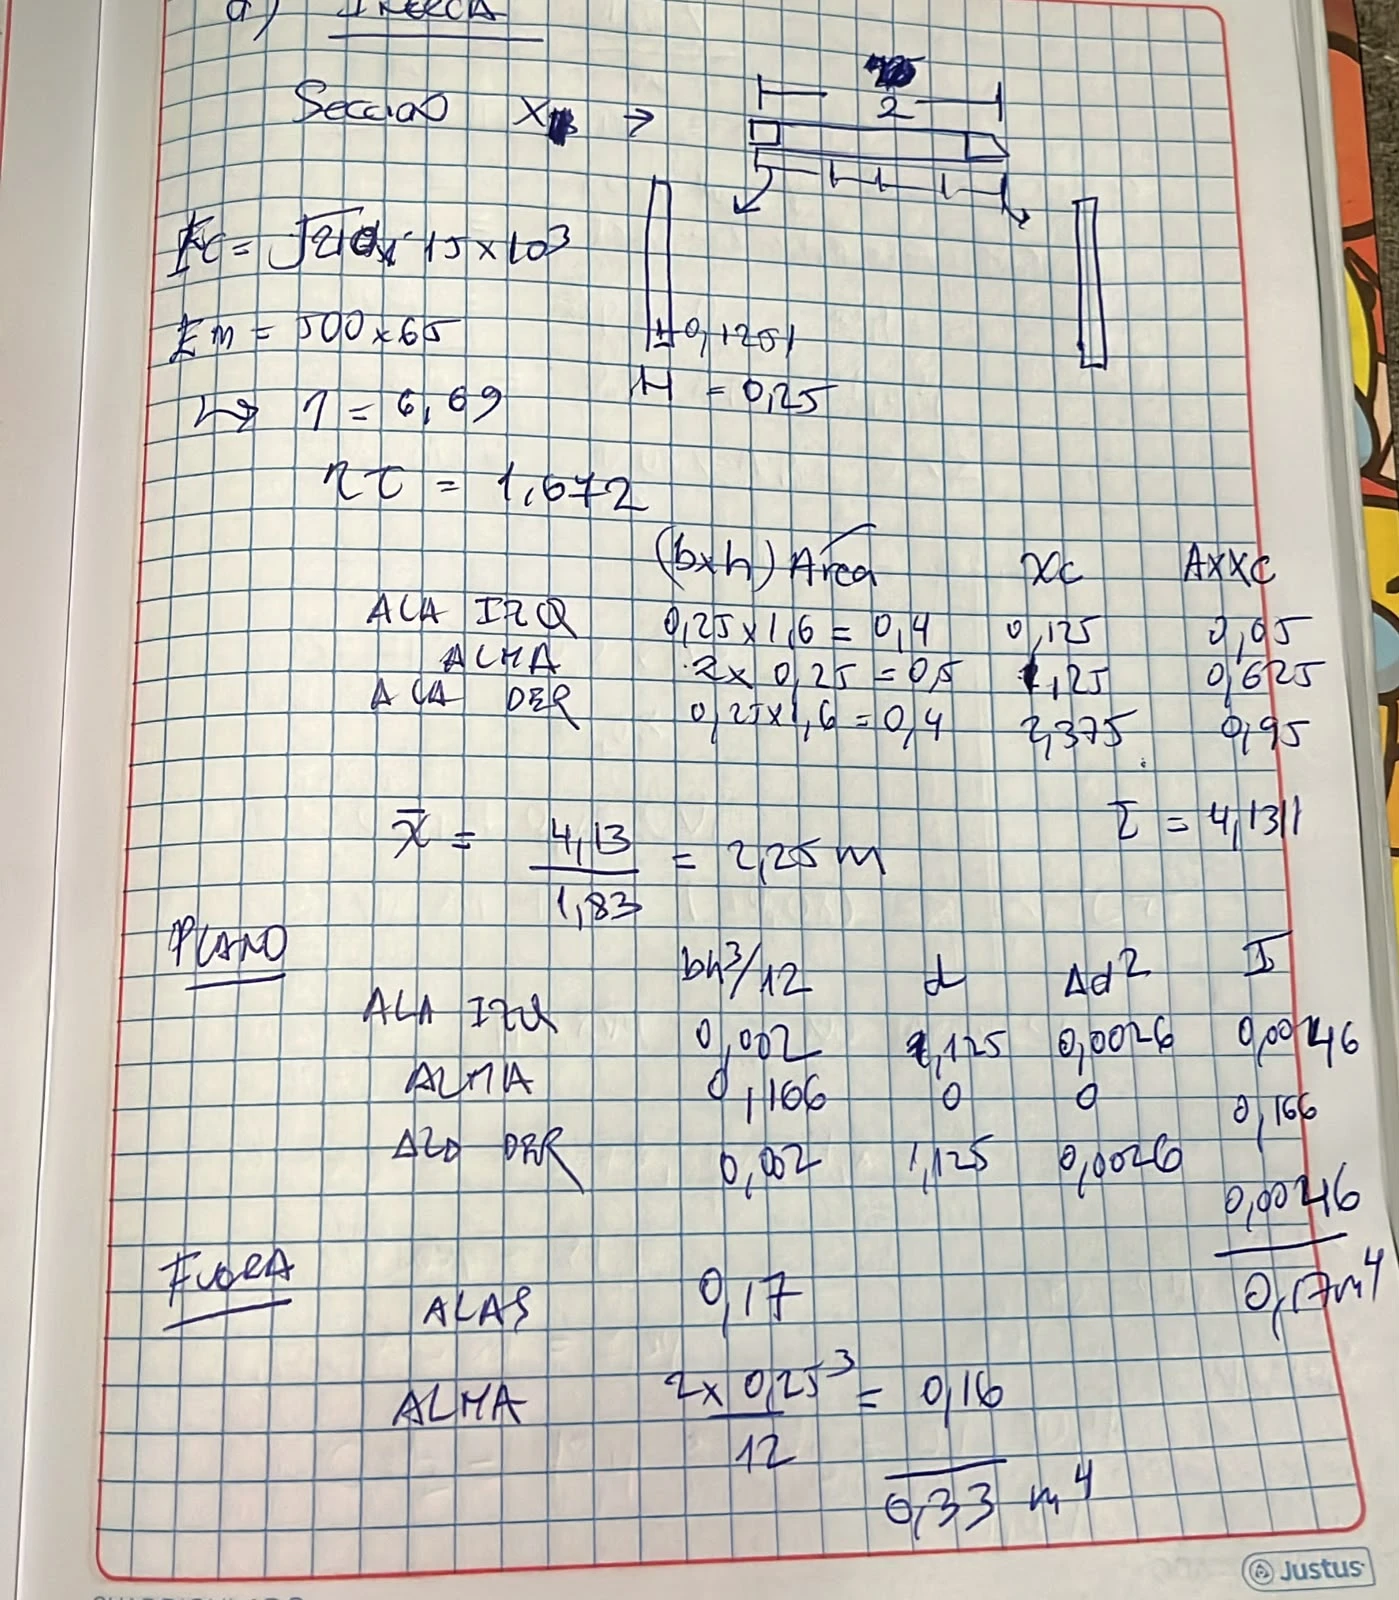 a) INERCIA
2
Sección X →
Ec = √210 · 15 x 10³
Em = 500 x 65
0,125
H = 0,25
↳ η = 6,69
ηt = 1,672
(bxh) Area Xc AxXc
ALA IZQ 0,25 x 1,6 = 0,4 0,125 0,05
ALMA 2 x 0,25 = 0,5 1,25 0,625
ALA DER 0,25 x 1,6 = 0,4 2,375 0,95
Σ = 4,1311
x̄ = 4,13 / 1,83 = 2,25 m
PLANO
bh³/12 d Ad² I
ALA IZQ 0,002 1,125 0,0026 0,0046
ALMA 0,166 0 0 0,166
ALA DER 0,002 1,125 0,0026 0,0046
0,17 m⁴
FUERA
ALAS 0,17
ALMA 2 x 0,25³ / 12 = 0,16
0,33 m⁴
Justus